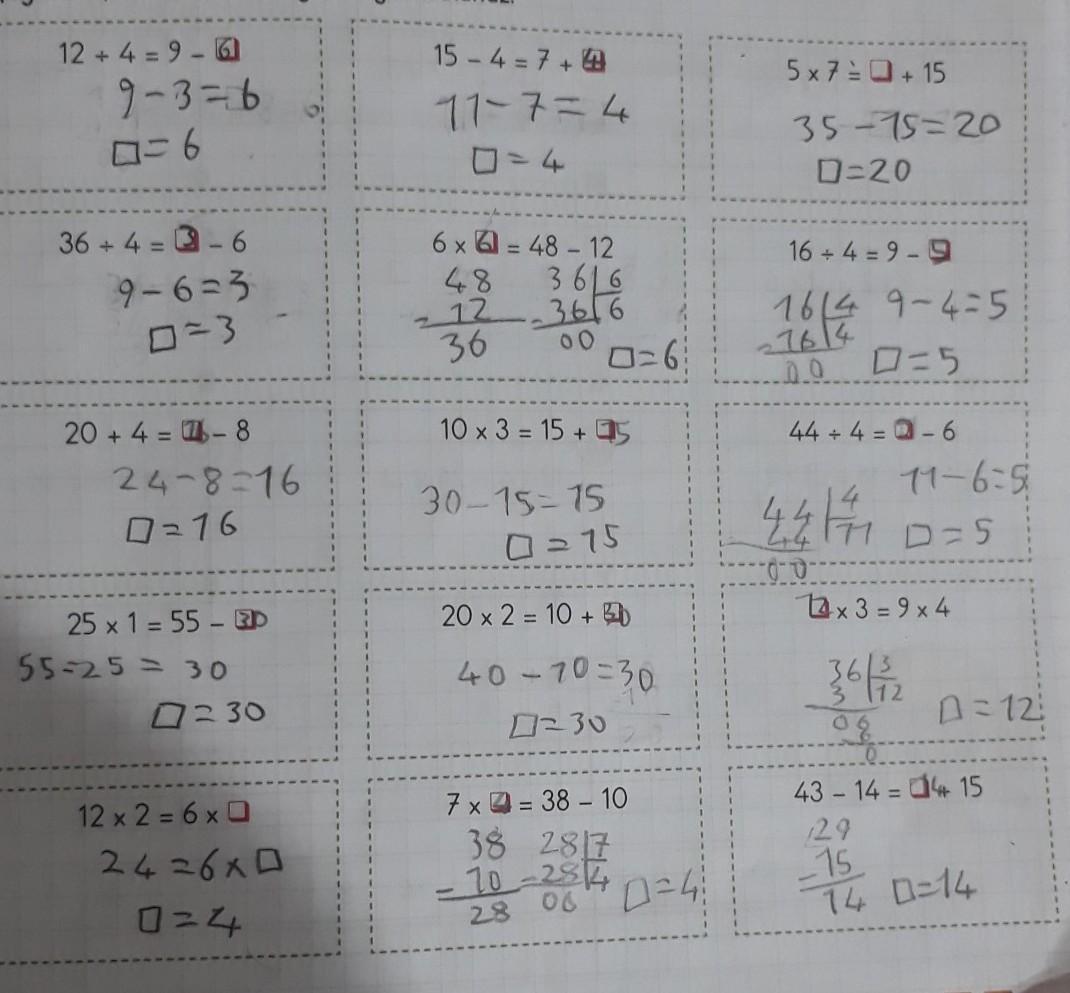 12 ÷ 4 = 9 - 6
9 - 3 = 6
□ = 6
15 - 4 = 7 + 4
11 - 7 = 4
□ = 4
5 x 7 = □ + 15
35 - 15 = 20
□ = 20
36 ÷ 4 = 3 - 6
9 - 6 = 3
□ = 3
6 x 6 = 48 - 12
48 36 | 6
- 12 - 36 | 6
36 00 □ = 6
16 ÷ 4 = 9 - 5
16 | 4 9 - 4 = 5
- 16 | 4
00 □ = 5
20 + 4 = 16 - 8
24 - 8 = 16
□ = 16
10 x 3 = 15 + 15
30 - 15 = 15
□ = 15
44 ÷ 4 = □ - 6
11 - 6 = 5
44 | 4
44 | 11 □ = 5
00
25 x 1 = 55 - 30
55 - 25 = 30
□ = 30
20 x 2 = 10 + 30
40 - 10 = 30
□ = 30
12 x 3 = 9 x 4
36 | 3
3 | 12 □ = 12
06
6
0
12 x 2 = 6 x □
24 = 6 x □
□ = 4
7 x 4 = 38 - 10
38 28 | 7
- 10 - 28 | 4 □ = 4
28 00
43 - 14 = 14 + 15
29
- 15
14 □ = 14